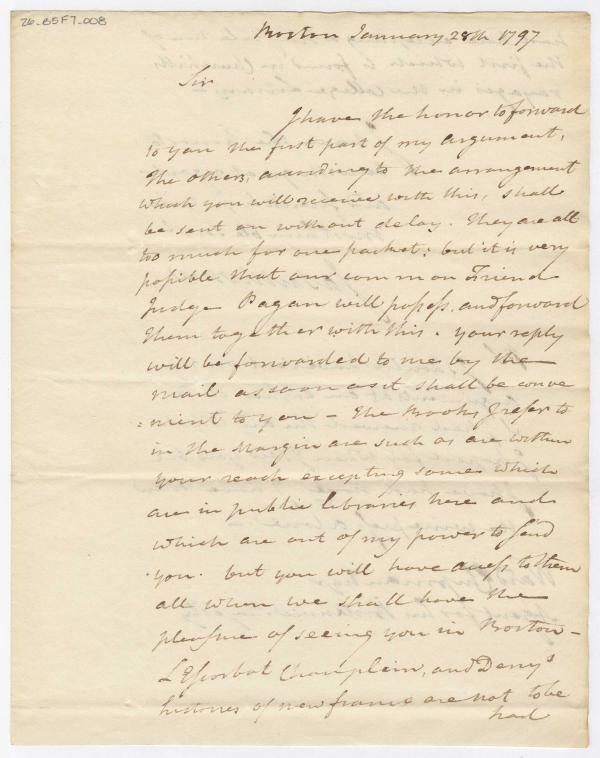 26-B5F7-008
Boston January 28th 1797
Sir
I have the honor to forward
to you the first part of my argument,
The others, according to the arrangement
which you will receive with this, shall
be sent on without delay. They are all
too much for one packet: but it is very
possible that our common Friend
Judge Pagan will possess, and forward
them together with this. your reply
will be forwarded to me by the
mail as soon as it shall be conve
=nient to you – The Books I refer to
in the Margin are such as are within
your reach excepting some which
are in public libraries here and
which are out of my power to send
you. but you will have access to them
all when we shall have the
pleasure of seeing you in Boston –
L'Escorbat Champlein, and Denys
histories of new france are not to be
had